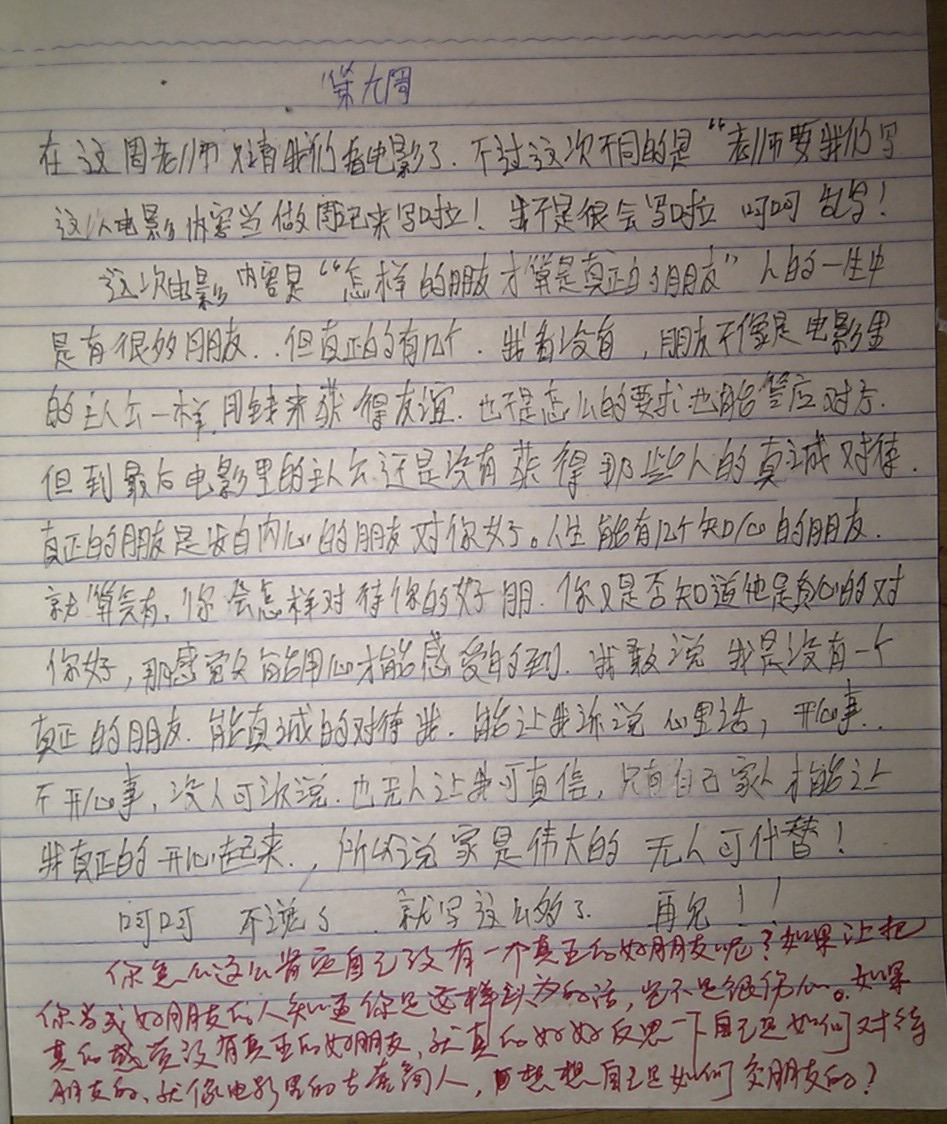 第九周
在这周老师只请我们看电影了.不过这次不同的是“老师要我们写
这人电影内容当做周记来写啦！我不是很会写啦 呵呵 乱写！
这次电影内容是“怎样的朋友才算是真正的朋友”人的一生中
是有很多朋友..但真正的有几个.我看没有，朋友不像是电影里
的主人公一样,用钱来获得友谊.也不是怎么的要求也能答应对方.
但到最后电影里的主人公还是没有获得那些人的真诚对待.
真正的朋友是发自内心的朋友对你好。人生能有几个知心的朋友.
就算有,你会怎样对待你的好朋.你又是否知道他是真心的对
你好，那感觉只能用心才能感受的到.我敢说我是没有一个
真正的朋友.能真诚的对待我.能让我诉说心里话，开心事.
不开心事,没人可诉说.也无人让我可真信,只有自己家人才能让
我真正的开心起来.，所以说家是伟大的 无人可代替！
呵呵 不说了 .就写这么的了. 再见！！
你怎么这么肯定自己没有一个真正的好朋友呢？如果让把
你当成好朋友的人知道你是这样认为的话,岂不是很伤心。如果
真的感觉没有真正的好朋友,就真的好好反思一下自己是如何对待
朋友的、就像电影里的古董商人，想想自己是如何交朋友的？